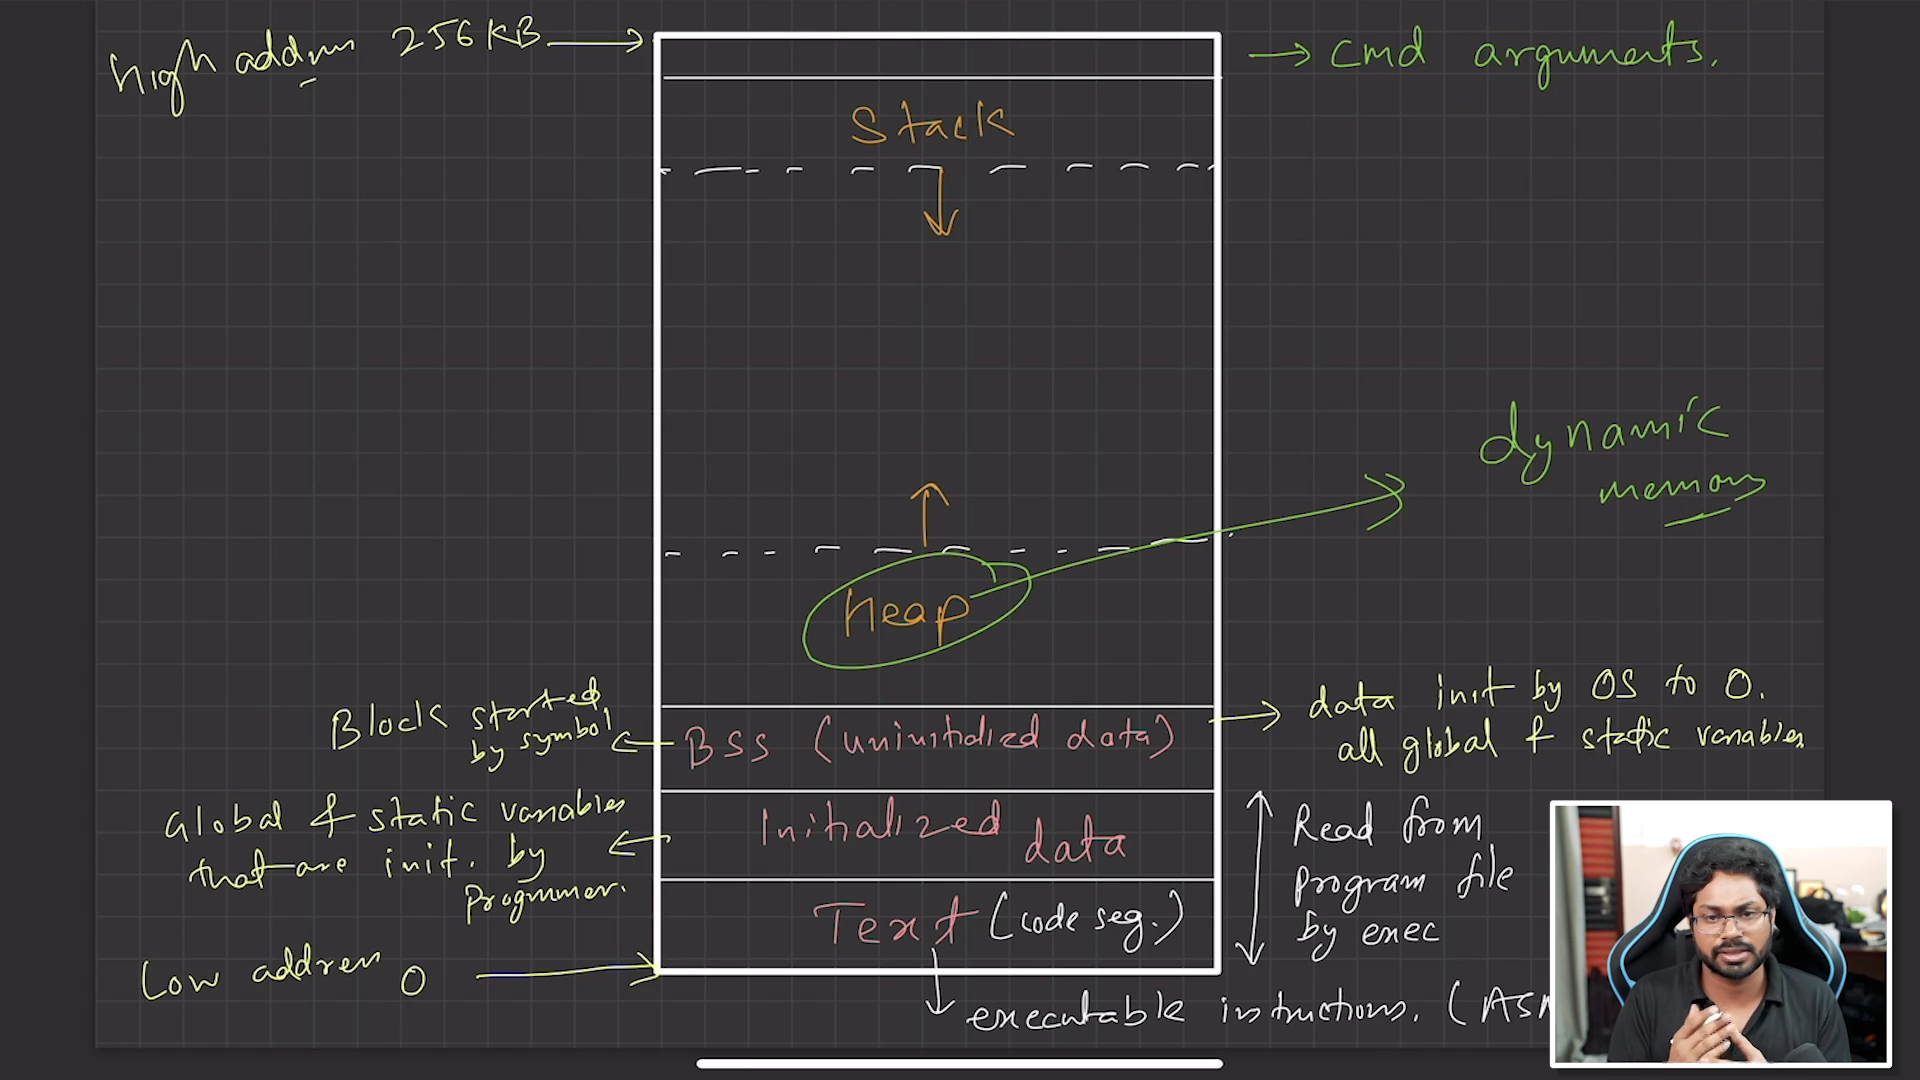 High address 256KB
→ cmd arguments.
Stack
dynamic
memory
Heap
Block started
by symbol
BSS (uninitialized data)
data init by OS to 0.
all global & static variables
Global & static variables
that are init. by
Programmer.
Initialized
data
Read from
program file
by exec
Text (code seg.)
Low address 0
executable instructions. (ASM